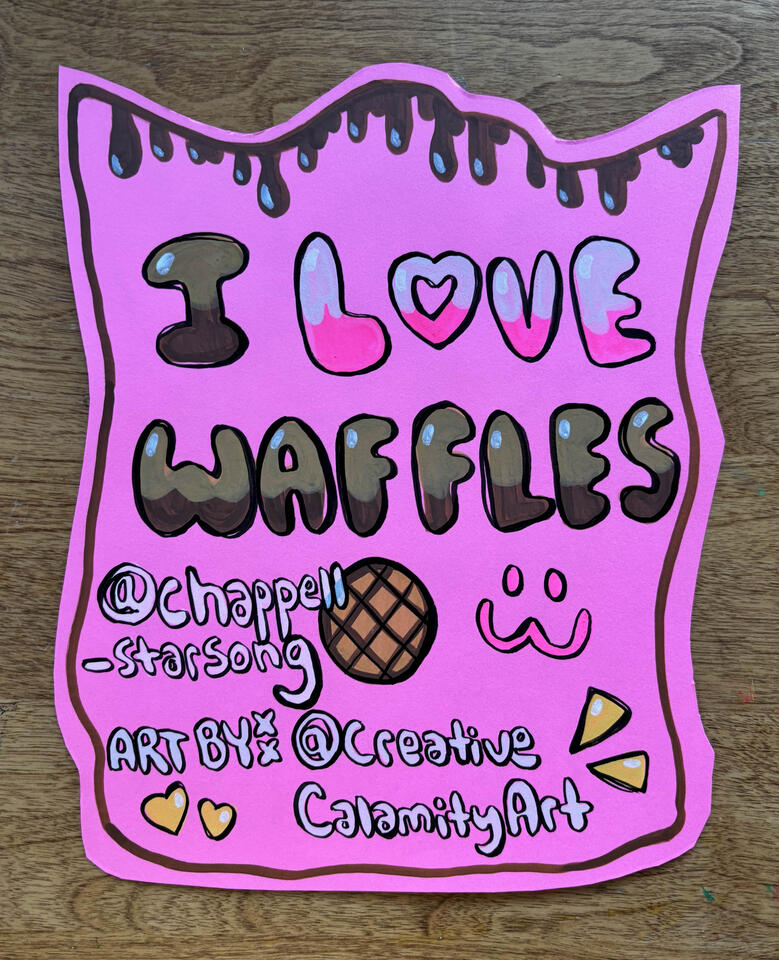 I LOVE
WAFFLES
@chappell
-starsong
ART BY: @Creative
CalamityArt